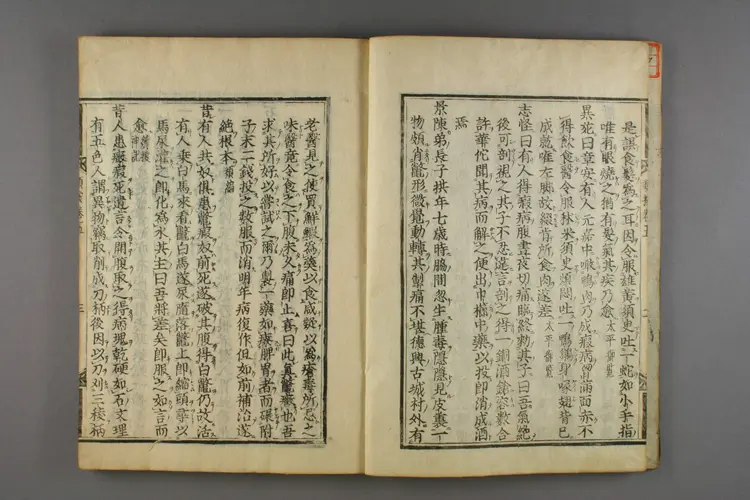 是誤食髮爲之耳因令服雄黄須臾吐一蛇如小手指
唯有眼燒之猶有髮氣其疾乃愈太平御覧
異苑曰章安有人元嘉中噉鴨肉乃成瘕病胷滿面赤不
得飲食醫令服秫米須臾煩悶吐一鴨鶵身喙翅皆巳
成就唯左脚故綴昔所食肉遂差太平御覧
志怪曰有人得瘕病腹晝夜切痛臨終勑其子曰吾氣絶
後可剖視之其子不忍違言剖之得一銅酒鎗容數合
許華佗聞其病而解之便出巾櫃中藥以投即消成酒
焉
景陳弟長子拱年七歳時脇間忽生腫毒隱隱見皮裏一
物頗肖鼈形微覺動轉其掣痛不堪德興古城村外有
老醫見之使買鮮鰕爲羹以食咸疑以爲瘡毒所忌之
味醫竟令食之下腹未久痛即止喜曰此真鼈癥也吾
求其所好以嘗試之爾乃製一藥如療脾胃者而碾附
子末二錢投之數服而消明年病復作但如前補治遂
絶根本類編
昔有人共奴俱患鼈瘕奴前死遂破其腹得白鼈仍故活
有人乗白馬來看鼈白馬遂尿隨落鼈上即縮頭藥以
馬尿灌之即化爲水其主曰吾將差矣即服之如言而
愈
昔人患癥瘕死遺言令開腹取之得病塊乾硬如石文理
有五色人謂異物竊取削成刀柄後因以刀刈三稜柄